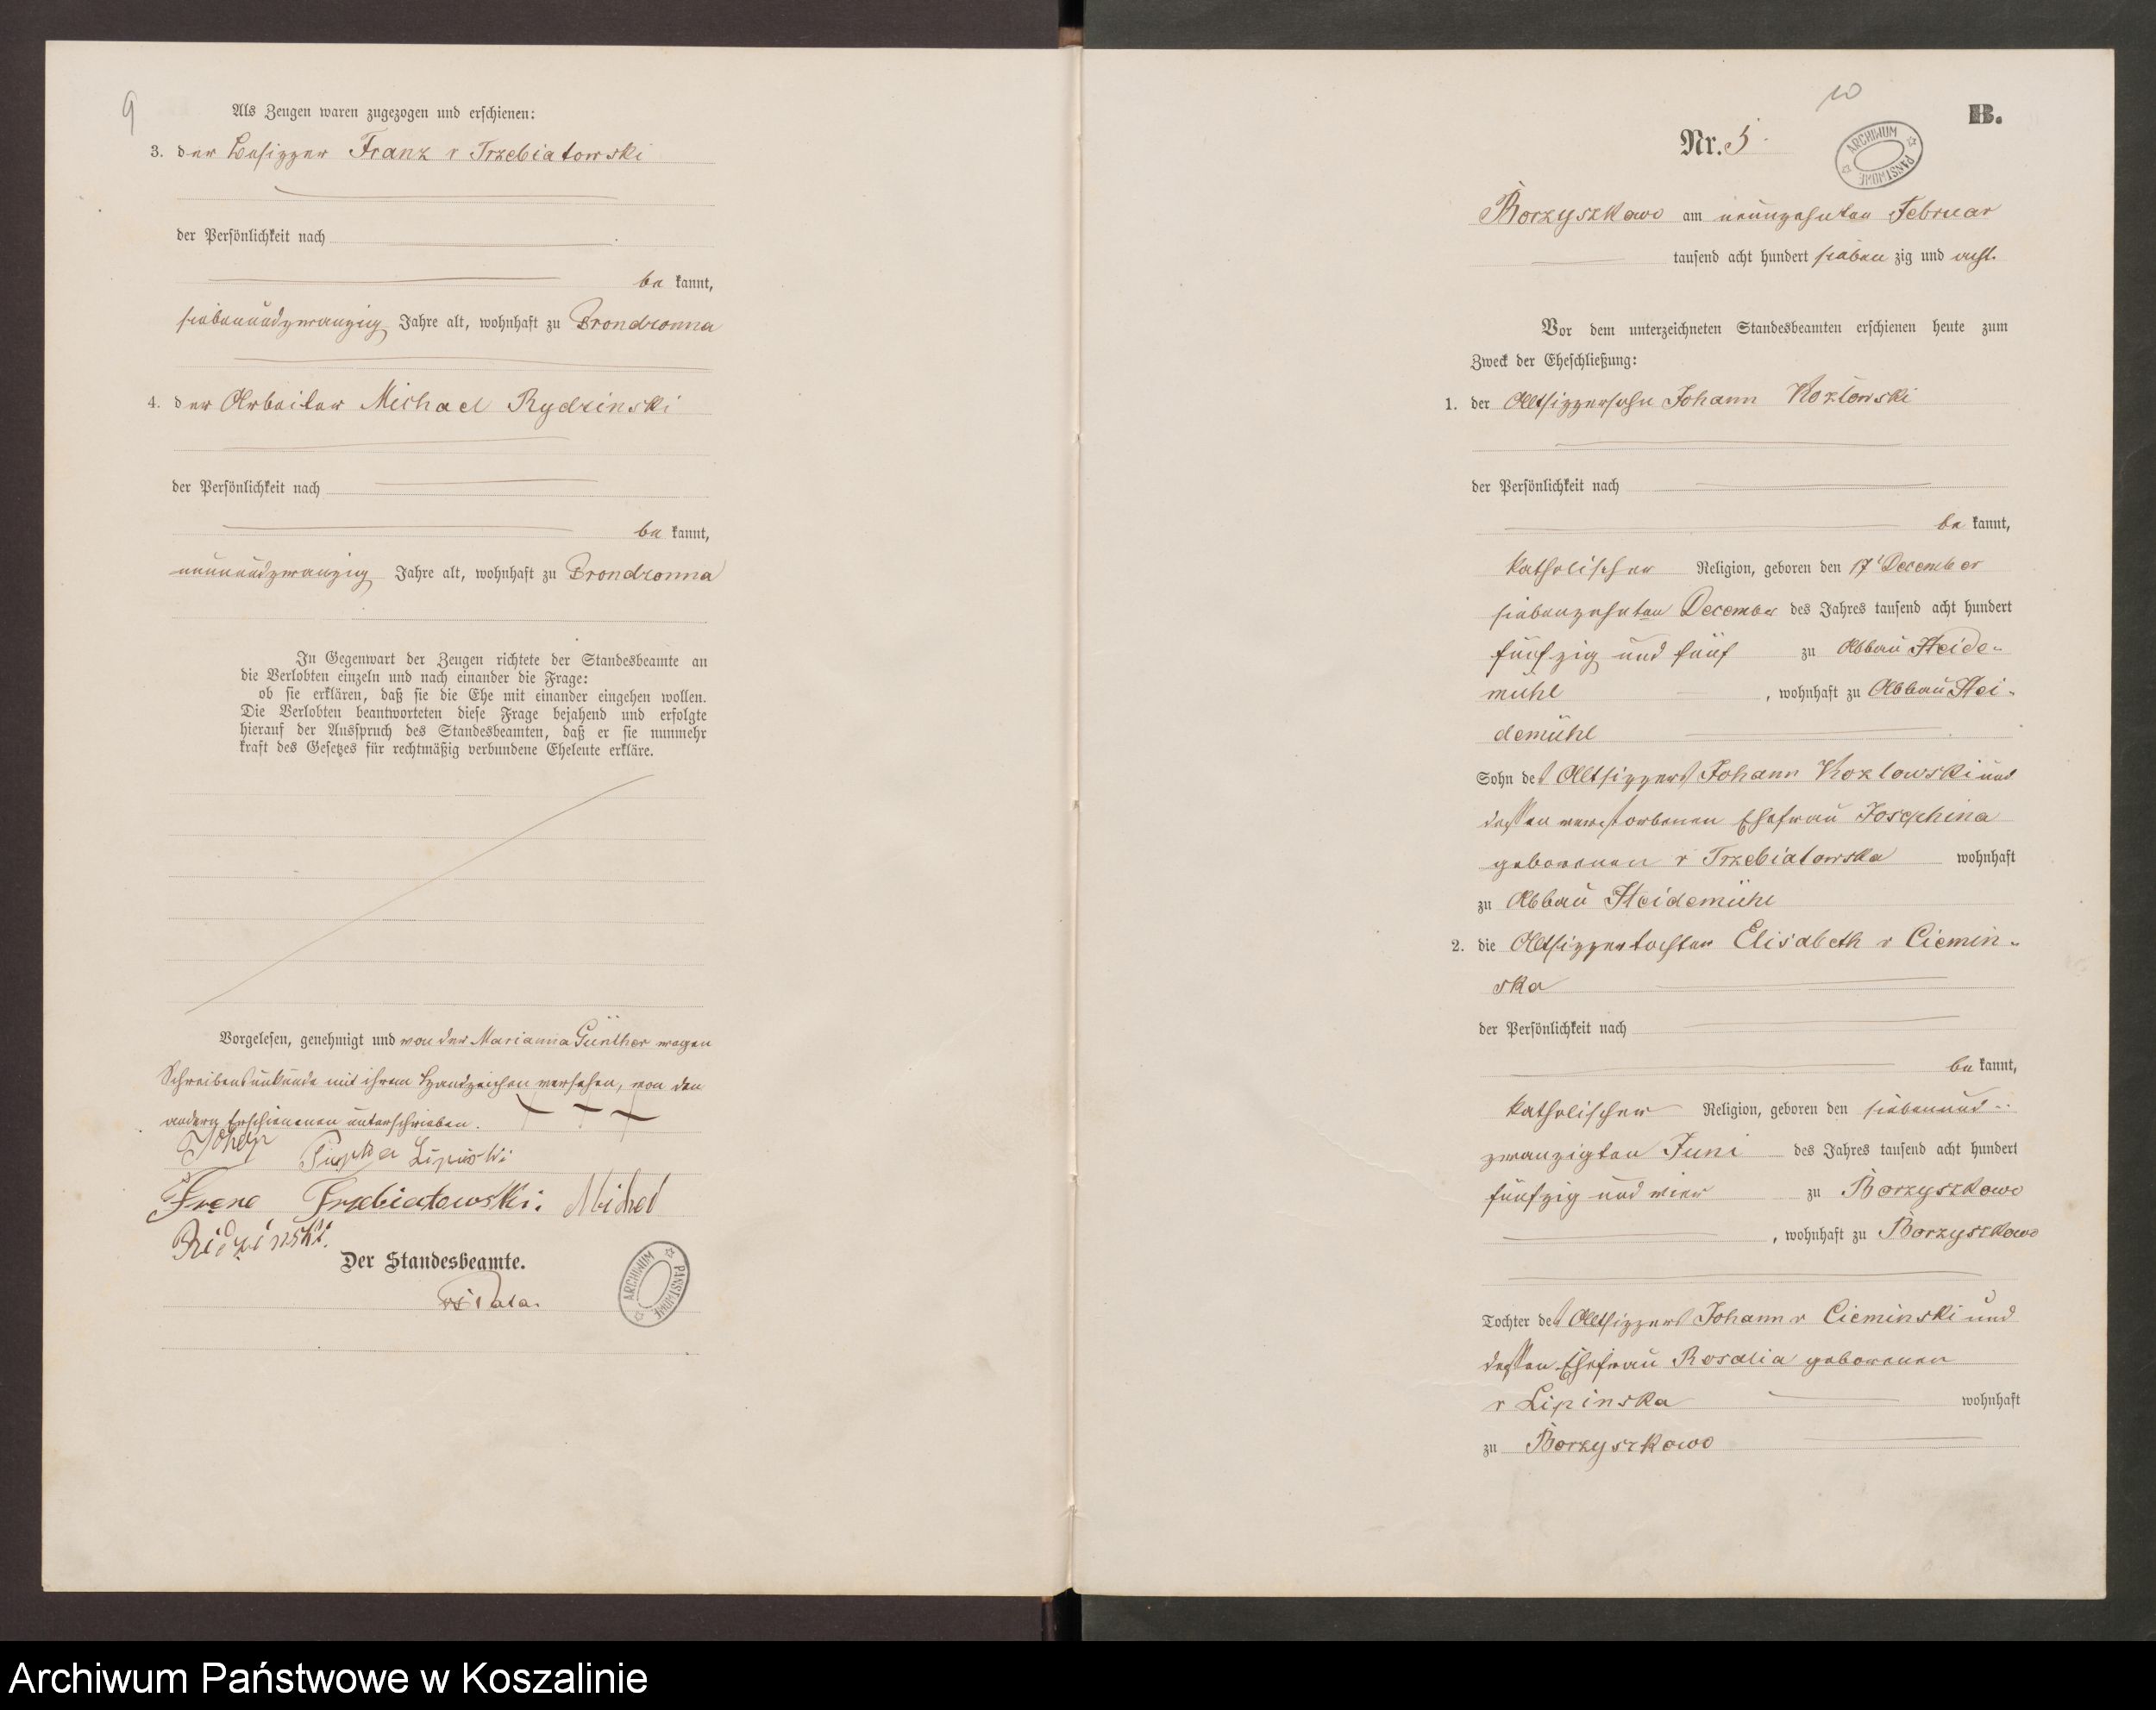 9
Als Zeugen waren zugezogen und erschienen:
3. der Besitzer Franz v Trzebiatowski
der Persönlichkeit nach
be kannt,
siebenundzwanzig Jahre alt, wohnhaft zu Brondzonna
4. der Arbeiter Michael Rydzinski
der Persönlichkeit nach
be kannt,
neunundzwanzig Jahre alt, wohnhaft zu Brondzonna
In Gegenwart der Zeugen richtete der Standesbeamte an
die Verlobten einzeln und nach einander die Frage:
ob sie erklären, daß sie die Ehe mit einander eingehen wollen.
Die Verlobten beantworteten diese Frage bejahend und erfolgte
hierauf der Ausspruch des Standesbeamten, daß er sie nunmehr
kraft des Gesetzes für rechtmäßig verbundene Eheleute erkläre.
Vorgelesen, genehmigt und von der Marianna Günther wegen
Schreibensunkunde mit ihrem Handzeichen versehen, von den
andern Erschienenen unterschrieben. + + +
Lipinski
Franc Trzebiatowski. Michel
Ridzinski.
Der Standesbeamte.
ARCHIWUM PAŃSTWOWE
10
B.
Nr. 5.
ARCHIWUM PAŃSTWOWE
Borzyszkowo am neunzehnten Februar
tausend acht hundert sieben zig und acht.
Vor dem unterzeichneten Standesbeamten erschienen heute zum
Zweck der Eheschließung:
1. der Altsitzersohn Johann Kozlowski
der Persönlichkeit nach
be kannt,
katholischer Religion, geboren den 17 December
siebenzehnten December des Jahres tausend acht hundert
fünfzig und fünf zu Abbau Heide-
mühl , wohnhaft zu Abbau Hei-
demühl
Sohn des Altsitzers Johann Kozlowski und
dessen verstorbenen Ehefrau Josephina
geborenen v Trzebiatowska wohnhaft
zu Abbau Heidemühl
2. die Altsitzertochter Elisabeth v Ciemin-
ska
der Persönlichkeit nach
be kannt,
katholischer Religion, geboren den siebenund-
zwanzigten Juni des Jahres tausend acht hundert
fünfzig und vier zu Borzyszkowo
, wohnhaft zu Borzyszkowo
Tochter des Altsitzers Johann v Cieminski und
dessen Ehefrau Rosalia geborenen
v Lipinska wohnhaft
zu Borzyszkowo
Archiwum Państwowe w Koszalinie